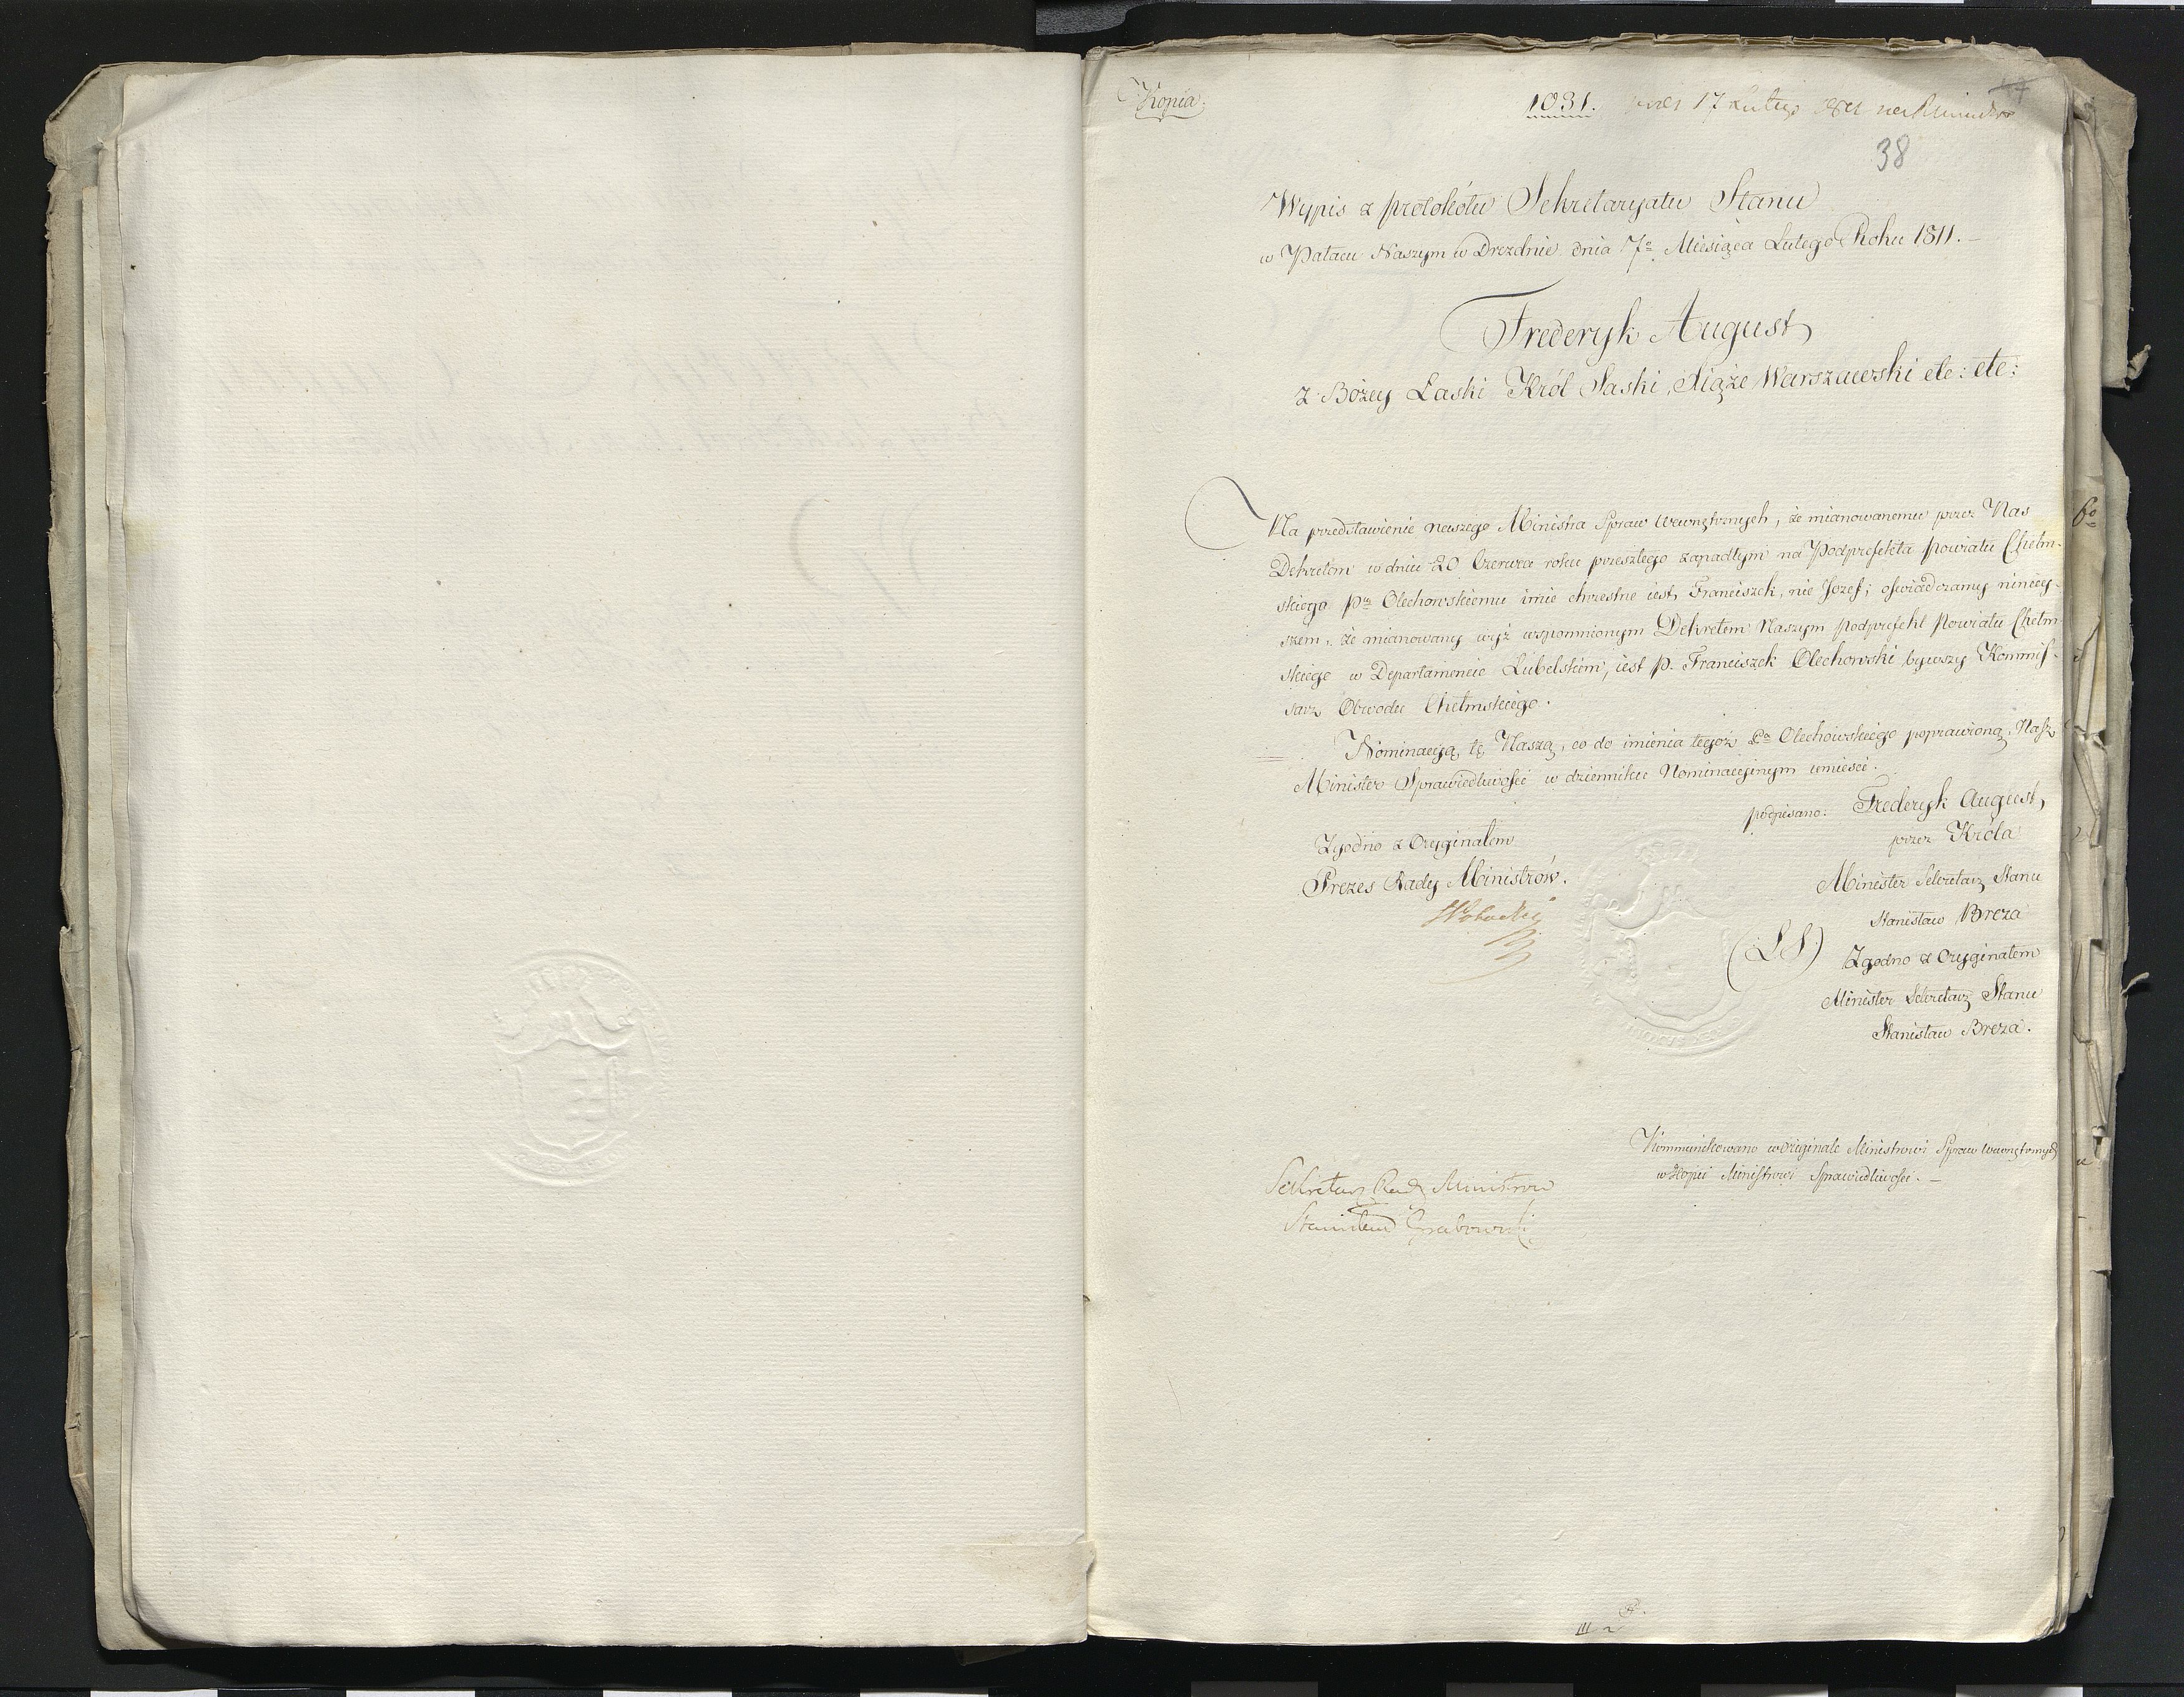 Kopia.
1031. 17 Lutego
38
Wypis z protokółu Sekretaryatu Stanu
w Pałacu Naszym w Dreźdnie dnia 7º Miesiąca Lutego Roku 1811. —
Frederyk August
z Bożey Łaski Król Saski, Xiąże Warszawski etc: etc:
Na przedstawienie naszego Ministra Spraw Wewnętrznych, że mianowanemu przez Nas
Dekretem w dniu 20 Czerwca roku przeszłego zapadłym na Podprefekta Powiatu Chełm-
skiego Pnu Olechowskiemu imie chrzestne iest Franciszek, nie Jozef; oświadczamy niniey-
szem, że mianowany wyż wspomnionym Dekretem Naszym podprefekt Powiatu Chełm-
skiego w Departamencie Lubelskim, iest P. Franciszek Olechowski bywszy Kommis-
sarz Obwodu Chełmskiego.
Nominacyą tę Naszą, co do imienia tegoż Pa Olechowskiego poprawioną, Nasz
Minister Sprawiedliwości w dzienniku Nominacyinym umieści.
podpisano: Frederyk August,
przez Króla
Minister Sekretarz Stanu
Stanisław Breza
(L S) Zgodno z Oryginałem
Minister Sekretarz Stanu
Stanisław Breza.
Zgodno z Oryginałem
Prezes Rady Ministrów.
Kommunikowano w Originale Ministrowi Spraw Wewnętrznych
w Kopii Ministrowi Sprawiedliwości. —
Sekretarz Rady Ministrow
Stanisław Grabowski